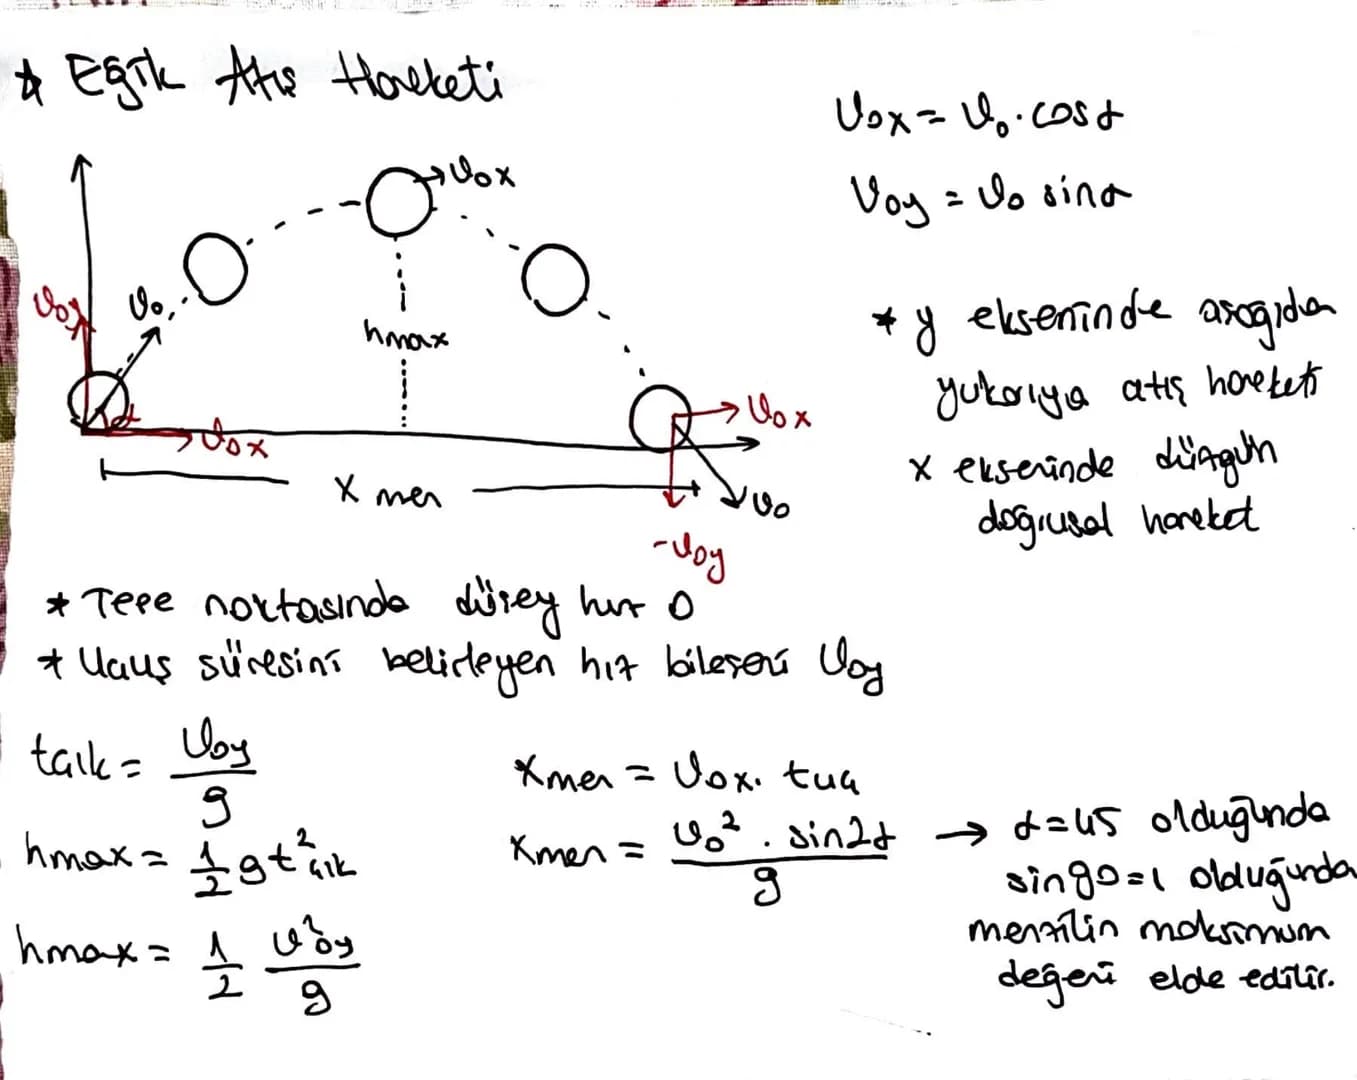 * Eğik Atış Hareketi
V₀x = V₀ . cos α
V₀y = V₀ sin α
V₀x
V₀y
V₀
hmax
α
V₀x
V₀x
X men
V₀
-V₀y
* y ekseninde aşağıdan
yukarıya atış hareketi
x ekseninde düzgün
doğrusal hareket
* Tepe noktasında düşey hız 0
* Uçuş süresini belirleyen hız bileşeni V₀y
tçık = V₀y / g
hmax = 1/2 g t²çık
hmax = 1/2 V²₀y / g
Xmen = V₀x . tuç
Xmen = V₀² . sin2α / g → α=45 olduğunda
sin90=1 olduğunda
menzilin maksimum
değeri elde edilir.